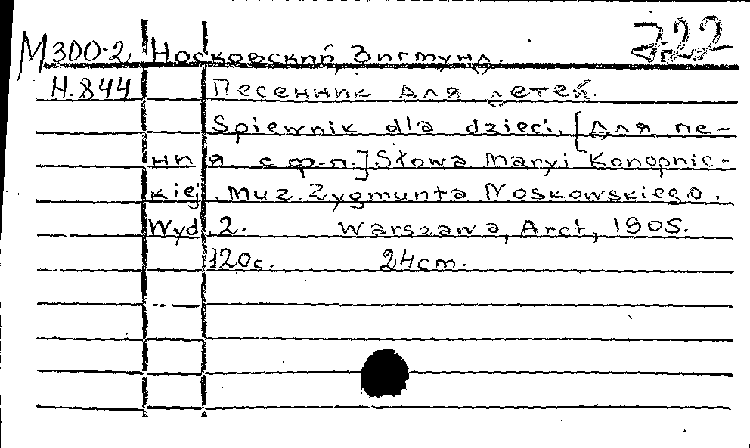 М300-2 Носковский, Зигмунд. 722
Н.844 Песенник для детей.
Spiewnik dla dzieci. [Для пе-
ния с ф-п.] Słowa Maryi Konopnic-
kiej. Muz. Zygmunta Noskowskiego.
Wyd. 2. Warszawa, Arct, 1905.
120с. 24cm.